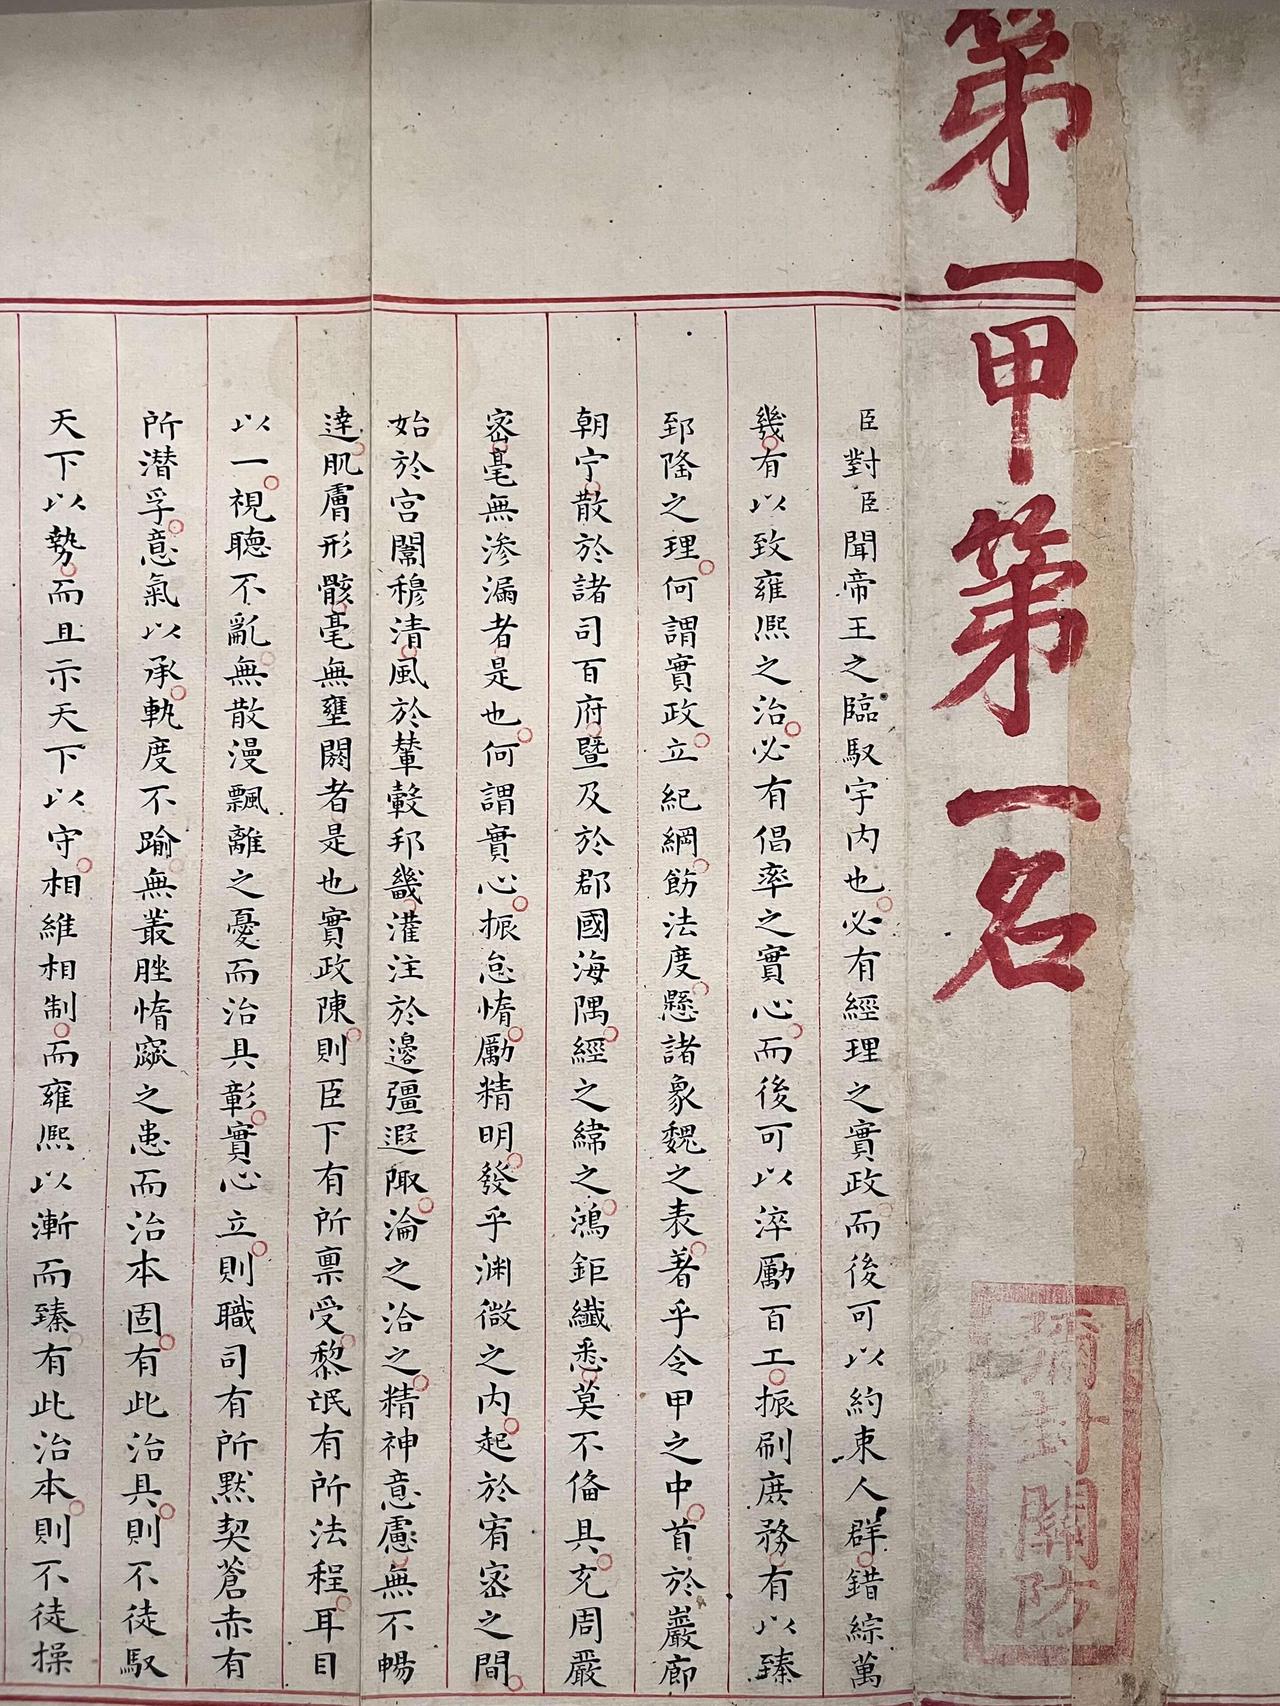 第一甲第一名
彌封關防
臣對臣聞帝王之臨馭宇内也必有經理之實政而後可以約束人群錯綜萬
幾有以致雍熙之治必有倡率之實心而後可以淬勵百工振刷庶務有以臻
郅隆之理何謂實政立紀綱飭法度懸諸象魏之表著乎令甲之中首於巖廊
朝宁散於諸司百府暨及於郡國海隅經之緯之鴻鉅纖悉莫不俻具充周嚴
宻毫無滲漏者是也何謂實心振怠惰勵精明發乎渊微之内起於宥宻之間
始於宫闈穆清風於輦轂邦畿灌注於邊疆遐陬淪之洽之精神意慮無不暢
達肌膚形骸毫無壅閼者是也實政陳則臣下有所禀受黎氓有所法程耳目
以一視聽不亂無散漫飄離之憂而治具彰實心立則職司有所默契蒼赤有
所潜孚意氣以承軌度不踰無叢脞惰窳之患而治本固有此治具則不徒馭
天下以勢而且示天下以守相維相制而雍熙以漸而臻有此治本則不徒操